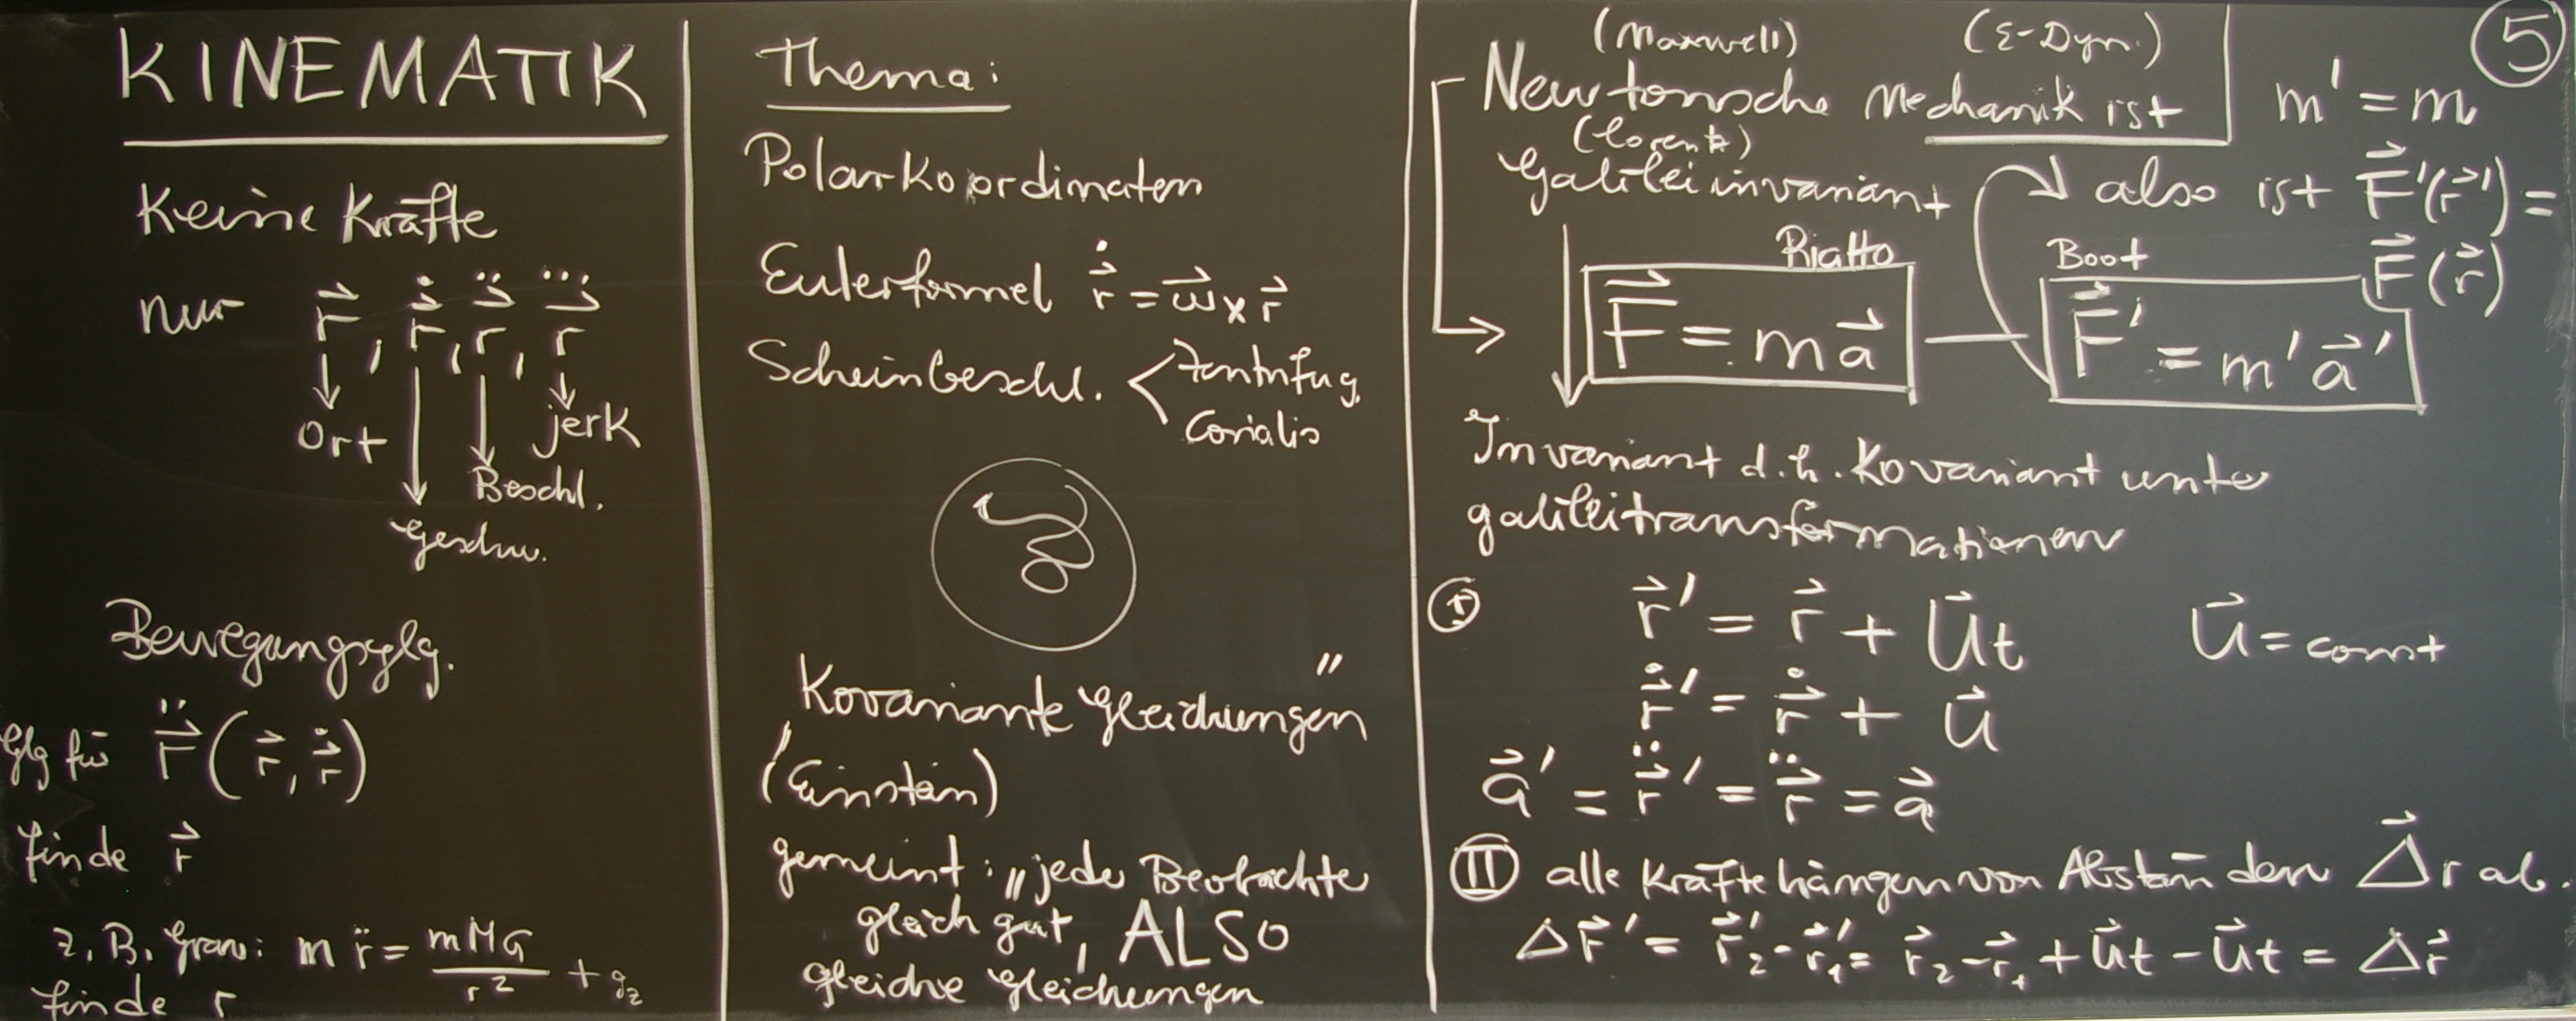 KINEMATIK
Keine Kräfte
nur r⃗, ṙ⃗, r̈⃗, r⃛⃗
Ort
jerk
Beschl.
Geschw.
Bewegungsglg.
Glg für r̈⃗ (r⃗, ṙ⃗)
finde r⃗
z.B. Grav: m r̈ = mMG / r² + g_z
finde r
Thema:
Polarkoordinaten
Eulerformel ṙ⃗ = ω⃗ x r⃗
Scheinbeschl. < Zentrifug.
Coriolis
"Kovariante Gleichungen"
(Einstein)
gemeint: "jeder Beobachter
gleich gut, ALSO
gleiche Gleichungen
(Maxwell) (E-Dyn.)
Newtonsche Mechanik ist
(Lorentz)
Galilei invariant
Rialto
F⃗ = m a⃗
Boot
F⃗' = m' a⃗'
⑤
m' = m
also ist F⃗'(r⃗') =
F⃗(r⃗)
Invariant d.h. Kovariant unter
Galileitransformationen
Ⓘ r⃗' = r⃗ + u⃗t u⃗ = const
ṙ⃗' = ṙ⃗ + u⃗
a⃗' = r̈⃗' = r̈⃗ = a⃗
Ⅱ alle Kräfte hängen von Abständen Δ⃗r ab.
Δr⃗' = r⃗₂' - r⃗₁' = r⃗₂ - r⃗₁ + u⃗t - u⃗t = Δr⃗